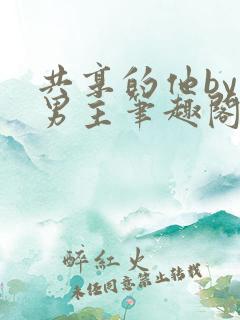 共享的他by
男主笔趣阁
醉红火
未经同意禁止转载